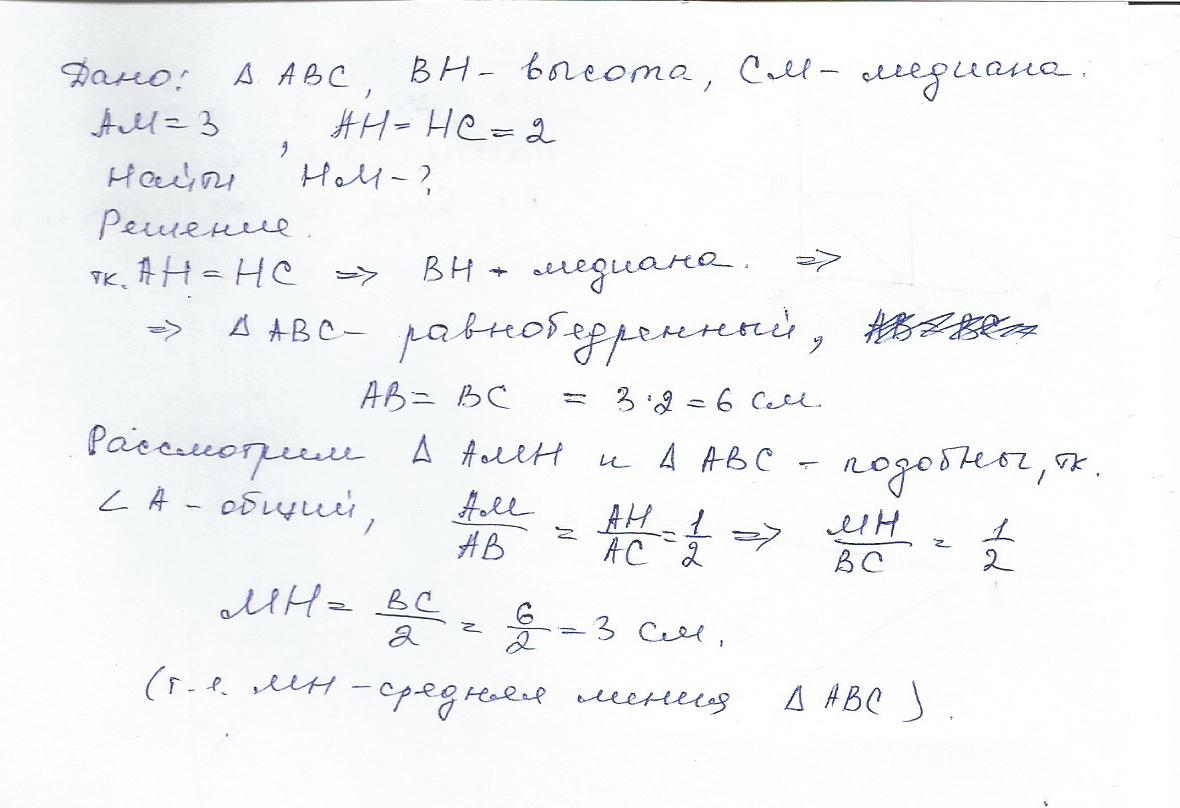 Дано: Δ ABC, BH - высота, CM - медиана.
AM = 3 , AH = HC = 2
Найти HM - ?
Решение.
тк. AH = HC => BH - медиана. =>
=> Δ ABC - равнобедренный,
AB = BC = 3·2 = 6 см
Рассмотрим Δ AMH и Δ ABC - подобны, тк.
∠ A - общий, AM/AB = AH/AC = 1/2 => MH/BC = 1/2
MH = BC/2 = 6/2 = 3 см.
(т.е. MH - средняя линия Δ ABC).